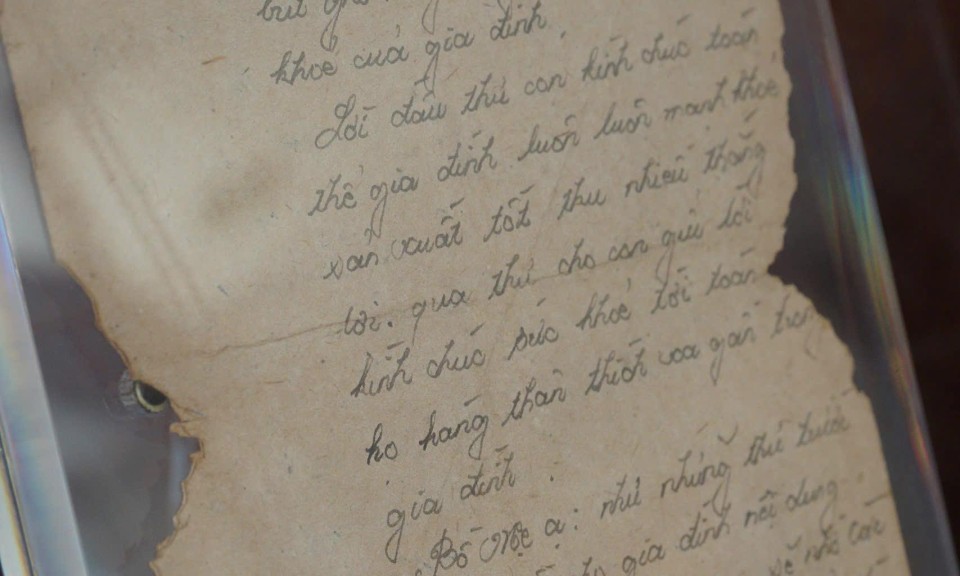 khoẻ cuả gia đình.
Lời đầu thư con kính chúc toàn
thể gia đình luôn luôn mạnh khoẻ
sản xuất tốt thu nhiều thắng
lợi. qua thư cho con gửi lời
kính chúc sức khoẻ tới toàn
họ hàng thân thích xa gần trong
gia đình.
Bố Mẹ ạ: như những thư trước
gia đình nội dung